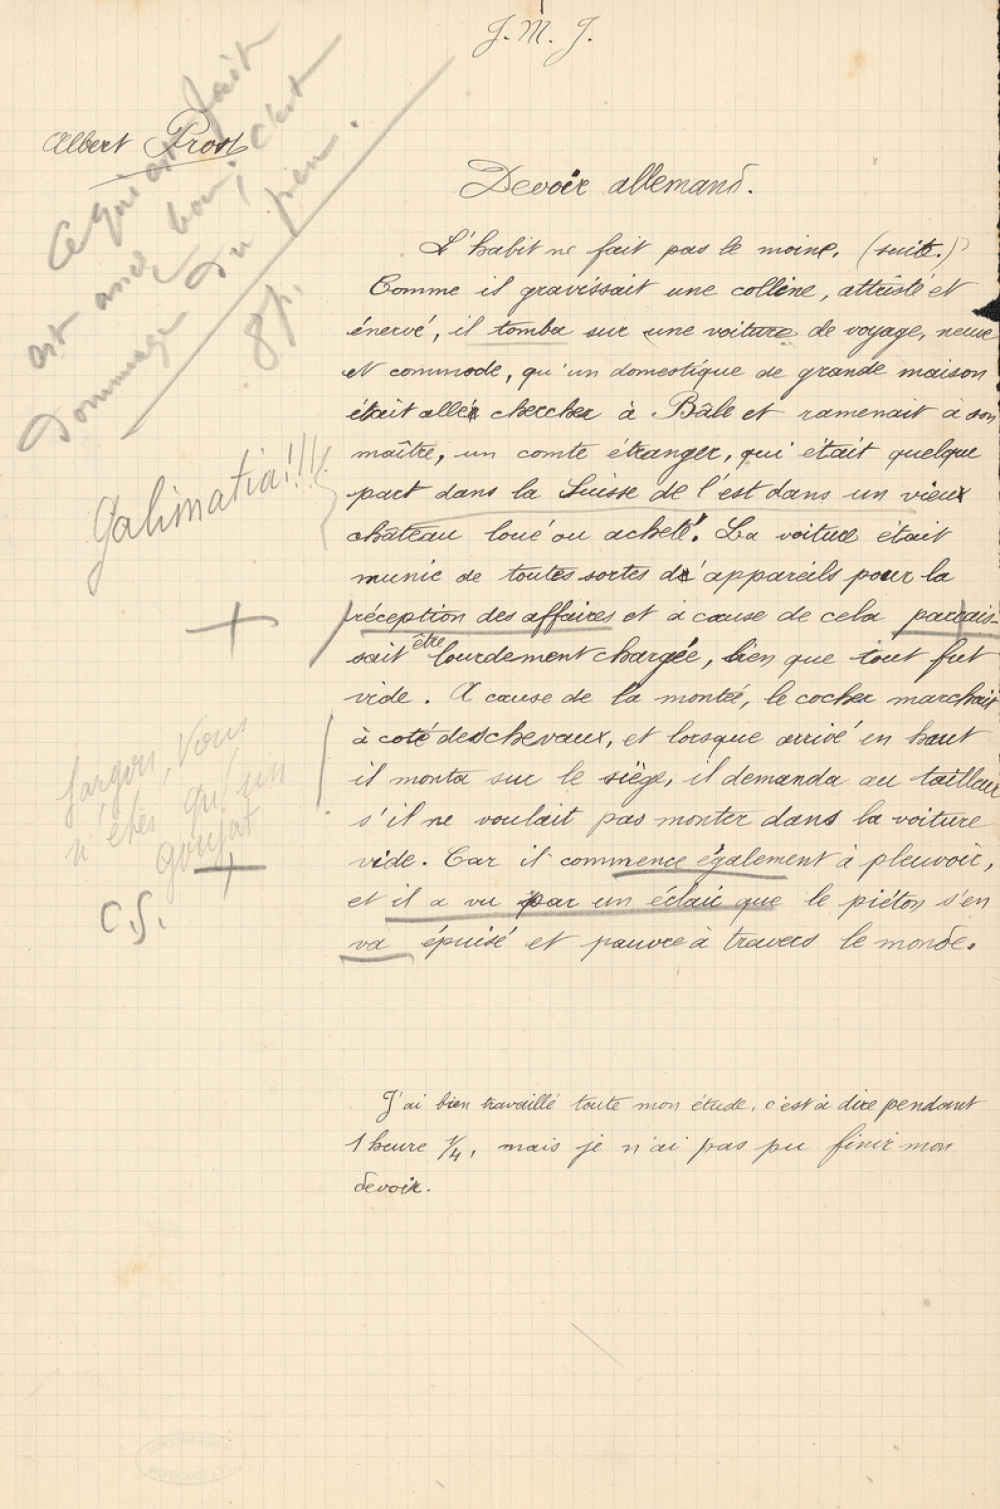 J. M. J.
Albert Prost
Ce qui est fait
est assez bon; c'est
dommage du peu.
8 p.
Devoir allemand.
L'habit ne fait pas le moine. (suite.)
Comme il gravissait une colline, attristé et
énervé, il tomba sur une voiture de voyage, neuve
et commode, qu'un domestique de grande maison
était allé chercher à Bâle et ramenait à son
maître, un comte étranger, qui était quelque
Galimatia!!!
part dans la Suisse de l'est dans un vieux
château loué ou acheté. La voiture était
munie de toutes sortes d'appareils pour la
réception des affaires et à cause de cela parais-
sait être lourdement chargée, bien que tout fut
vide. A cause de la montée, le cocher marchait
à coté des chevaux, et lorsque arrivé en haut
il monta sur le siège, il demanda au tailleur
s'il ne voulait pas monter dans la voiture
vide. Car il commence également à pleuvoir,
et il a vu par un éclair que le piéton s'en
va épuisé et pauvre à travers le monde.
Vous
n'êtes qu'un
goujat
C.S.
J'ai bien travaillé toute mon étude, c'est à dire pendant
1 heure 1/4, mais je n'ai pas pu finir mon
devoir.